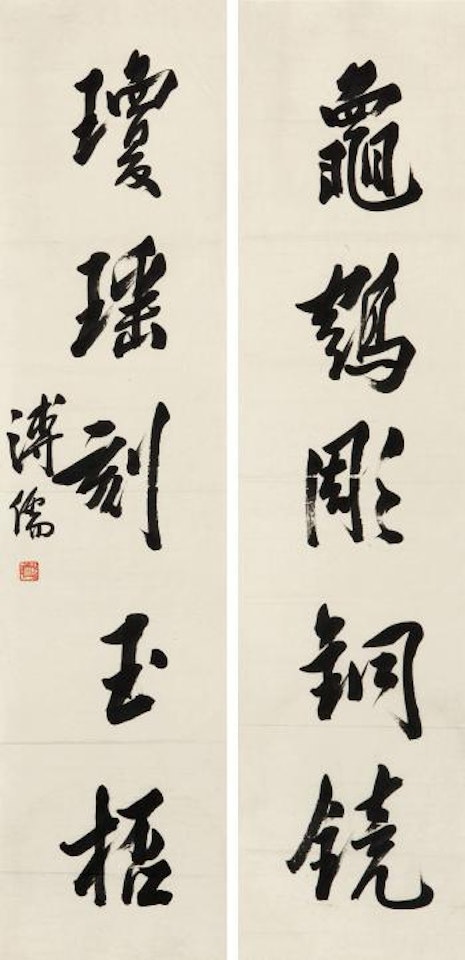 龜鶴彫銅鏡
瓊瑤刻玉桮
溥儒